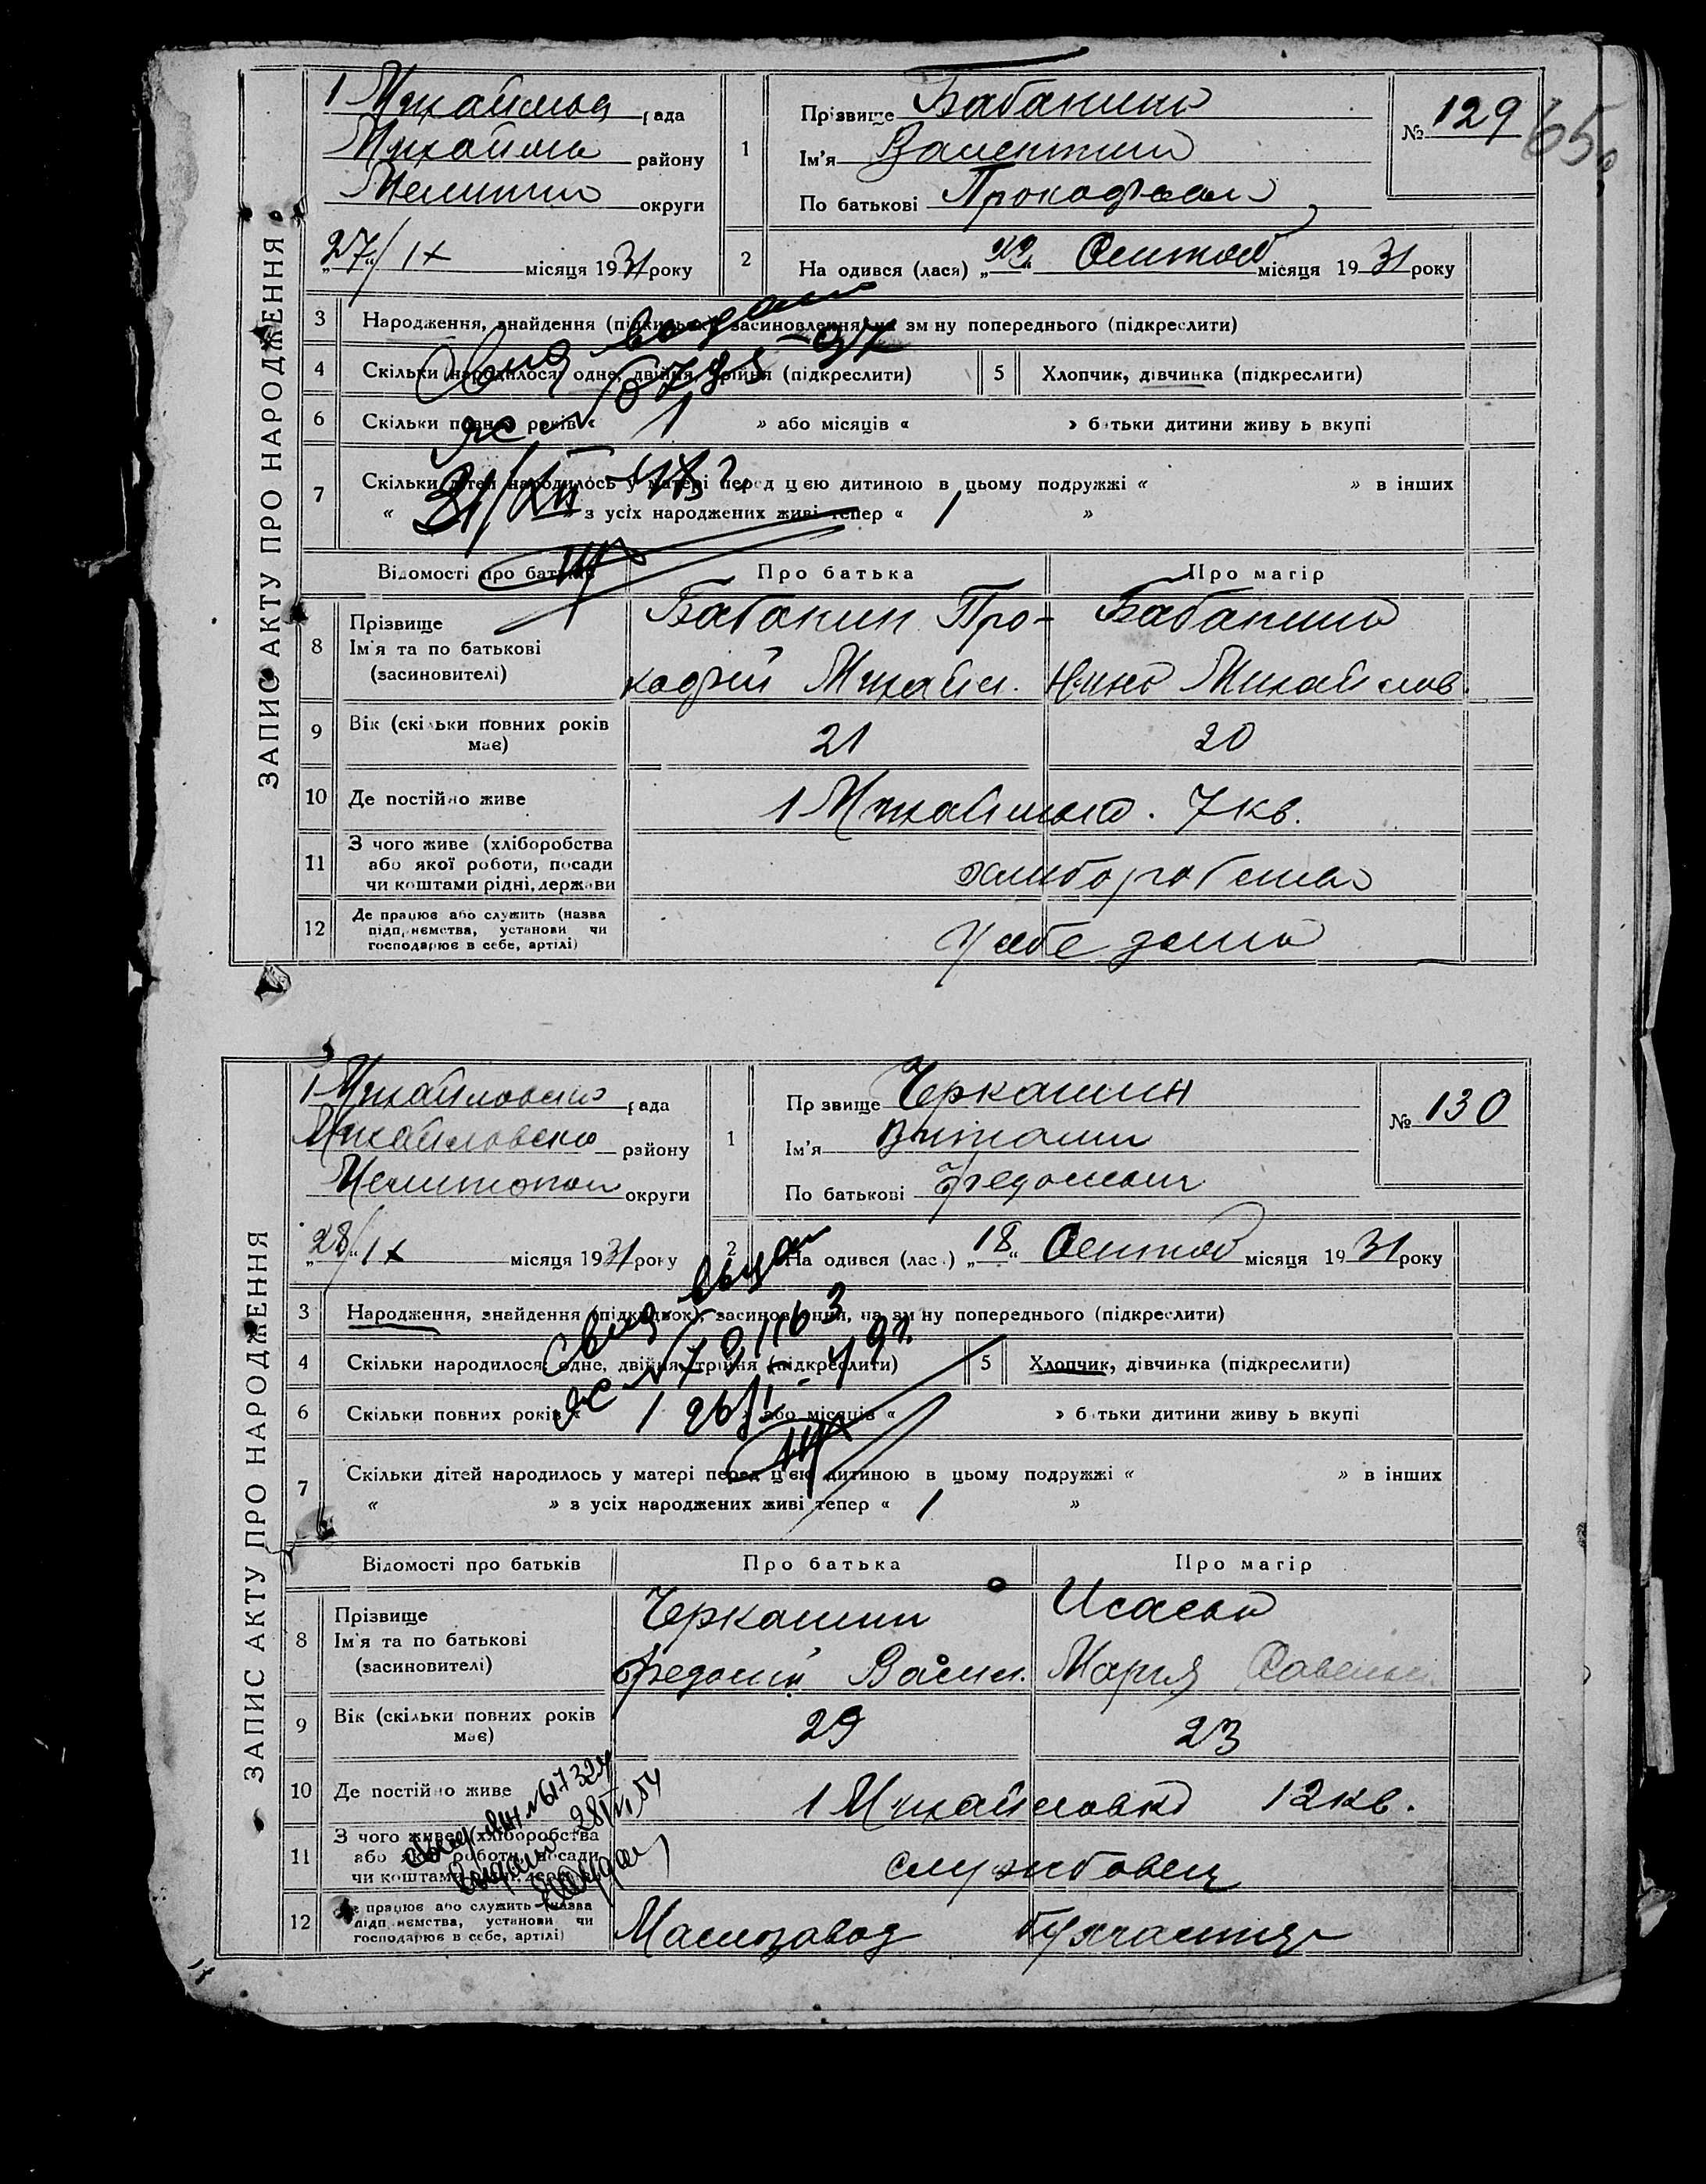 ЗАПИС АКТУ ПРО НАРОДЖЕННЯ
рада
району
Мелитоп округи
"27"/IX місяця 1931 року
1
Прізвище Бабанина
Ім'я Валентина
По батькові
№ 129
65
2
На одився (лася) „ " місяця 1931 року
3
Народження, знайдення (підкидьок), засиновлення, на зм ну попереднього (підкреслити)
4
Скільки народилося: одне, двійня, трійня (підкреслити)
5
Хлопчик, дівчинка (підкреслити)
6
Скільки повних років « 1 » або місяців « » б тьки дитини живу ь вкупі
7
Скільки дітей народилось у матері перед цією дитиною в цьому подружжі « » в інших
« » з усіх народжених живі тепер « 1 »
Свид выдано
ЯС №
31/XII-47 г
Відомості про батьків
Про батька
Про матір
8
Прізвище
Ім'я та по батькові
(засновителі)
Бабанин Про-
кофий Михайл.
Бабанина
Нина Михайлов
9
Вік (скільки повних років має)
21
20
10
Де постійно живе
1 Михайловка. 7 кв.
11
З чого живе (хліборобства або якої роботи, посади чи коштами рідні, держави
хлиборобства
12
Де працює або служить (назва підприємства, установи чи господарює в себе, артілі)
У себе дома
ЗАПИС АКТУ ПРО НАРОДЖЕННЯ
1 Михайловска рада
Михайловско району
Мелитопол округи
"28"/IX місяця 1931 року
1
Пр звище Черкашин
Ім'я Виталий
По батькові
№ 130
2
На одився (лас ) „18" місяця 1931 року
3
Народження, знайдення (підкидьок), засиновлення, на зм ну попереднього (підкреслити)
4
Скільки народилося: одне, двійня, трійня (підкреслити)
5
Хлопчик, дівчинка (підкреслити)
6
Скільки повних років « 1 » або місяців « » б тьки дитини живу ь вкупі
7
Скільки дітей народилось у матері перед цією дитиною в цьому подружжі « » в інших
« » з усіх народжених живі тепер « 1 »
Свид выдан
ЯС № 791163
Відомості про батьків
Про батька
Про матір
8
Прізвище
Ім'я та по батькові
(засиновителі)
Черкашин
Федосий Васил.
Исаева
Мария Савельев
9
Вік (скільки повних років має)
29
23
10
Де постійно живе
1 Михайловка 12 кв.
11
З чого живе (хліборобства або якої роботи, посади чи коштами рідні, держави
службовец
12
Де працює або служить (назва підприємства, установи чи господарює в себе, артілі)
Маслозавод